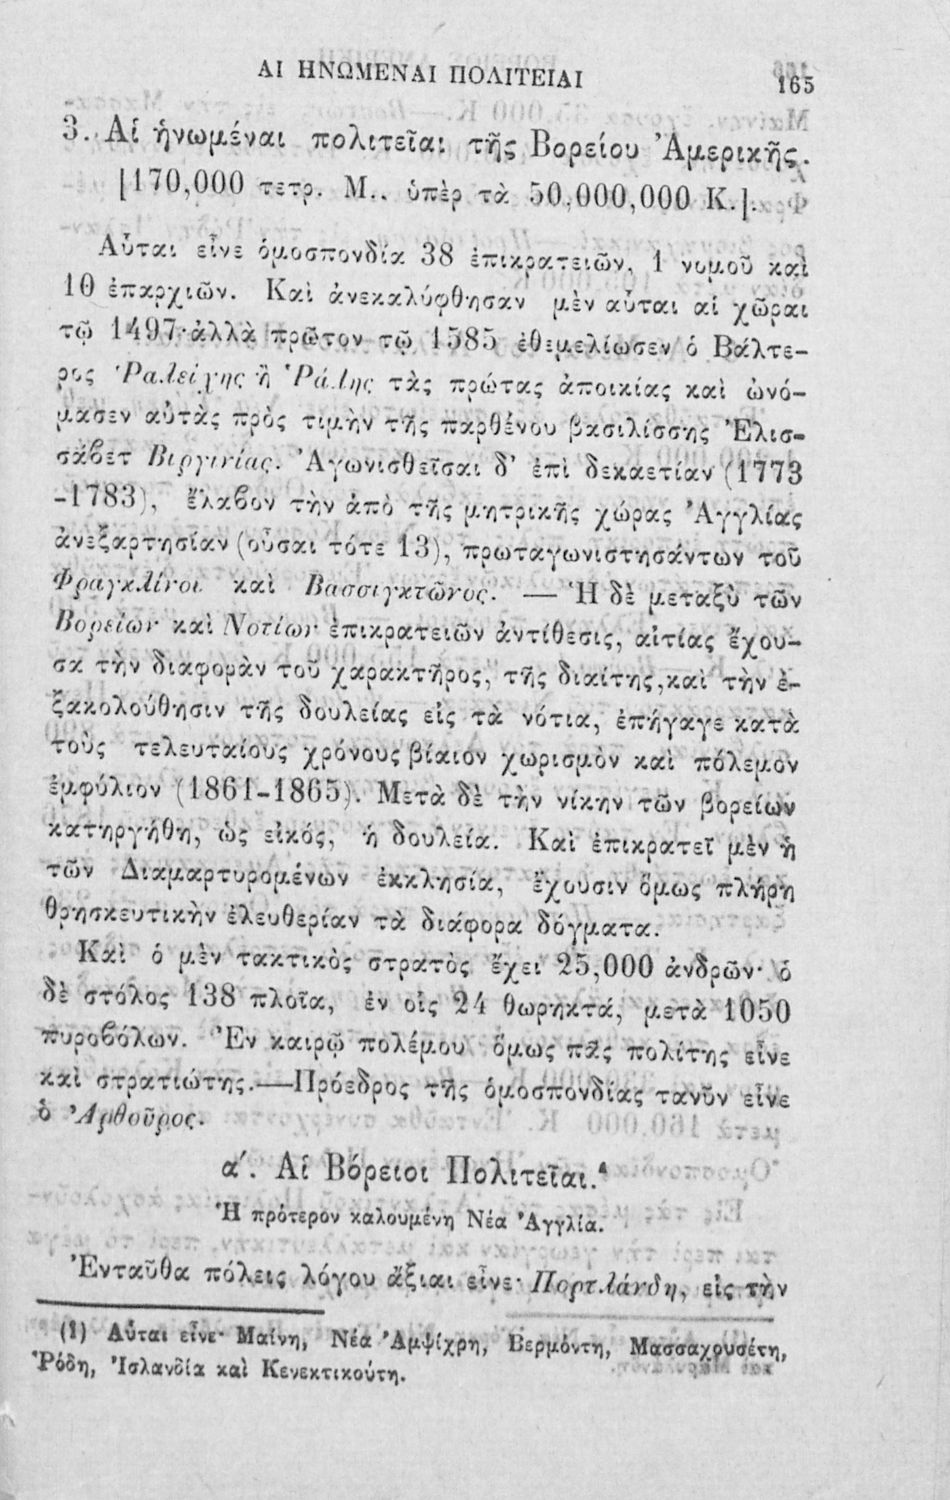 ΑΙ ΗΝΩΜΕΝΑΙ ΠΟΛΙΤΕΙΑΙ 165
3. Αἱ ἡνωμέναι πολιτεῖαι τῆς Βορείου Ἀμερικῆς.
[170,000 τετρ. Μ.. ὑπὲρ τὰ 50,000,000 Κ.].
Αὗται εἶνε ὁμοσπονδία 38 ἐπικρατειῶν, 1 νομοῦ καὶ
10 ἐπαρχιῶν. Καὶ ἀνεκαλύφθησαν μὲν αὗται αἱ χῶραι
τῷ 1497· ἀλλὰ πρῶτον τῷ 1585 ἐθεμελίωσεν ὁ Βάλτε-
ρος Ῥαλείχης ἢ Ῥάλης τὰς πρώτας ἀποικίας καὶ ὠνό-
μασεν αὐτὰς πρὸς τιμὴν τῆς παρθένου βασιλίσσης Ἐλισ-
σάβετ Βιργινίας. Ἀγωνισθεῖσαι δ’ ἐπὶ δεκαετίαν (1773
-1783), ἔλαβον τὴν ἀπὸ τῆς μητρικῆς χώρας Ἀγγλίας
ἀνεξαρτησίαν (οὖσαι τότε 13), πρωταγωνιστησάντων τοῦ
Φραγκλίνοι καὶ Βασσιγκτῶνος. — Ἡ δὲ μεταξὺ τῶν
Βορείων καὶ Νοτίων ἐπικρατειῶν ἀντίθεσις, αἰτίας ἔχου-
σα τὴν διαφορὰν τοῦ χαρακτῆρος, τῆς διαίτης, καὶ τὴν ἐ-
ξακολούθησιν τῆς δουλείας εἰς τὰ νότια, ἐπήγαγε κατὰ
τοὺς τελευταίους χρόνους βίαιον χωρισμὸν καὶ πόλεμον
ἐμφύλιον (1861-1865). Μετὰ δὲ τὴν νίκην τῶν βορείων
κατηργήθη, ὡς εἰκός, ἡ δουλεία. Καὶ ἐπικρατεῖ μὲν ἡ
τῶν Διαμαρτυρομένων ἐκκλησία, ἔχουσιν ὅμως πλήρη
θρησκευτικὴν ἐλευθερίαν τὰ διάφορα δόγματα.
Καὶ ὁ μὲν τακτικὸς στρατὸς ἔχει 25,000 ἀνδρῶν· ὁ
δὲ στόλος 138 πλοῖα, ἐν οἷς 24 θωρηκτά, μετὰ 1050
πυροβόλων. Ἐν καιρῷ πολέμου ὅμως πᾶς πολίτης εἶνε
καὶ στρατιώτης.—Πρόεδρος τῆς ὁμοσπονδίας τανῦν εἶνε
ὁ Ἀρθοῦρος.
α΄. Αἱ Βόρειοι Πολιτεῖαι.¹
Ἡ πρότερον καλουμένη Νέα Ἀγγλία.
Ἐνταῦθα πόλεις λόγου ἄξιαι εἶνε· Πορτλάνδη, εἰς τὴν
(1) Αὗται εἶνε· Μαίνη, Νέα Ἀμψίχρη, Βερμόντη, Μασσαχουσέτη,
Ῥόδη, Ἰσλανδία καὶ Κενεκτικούτη.